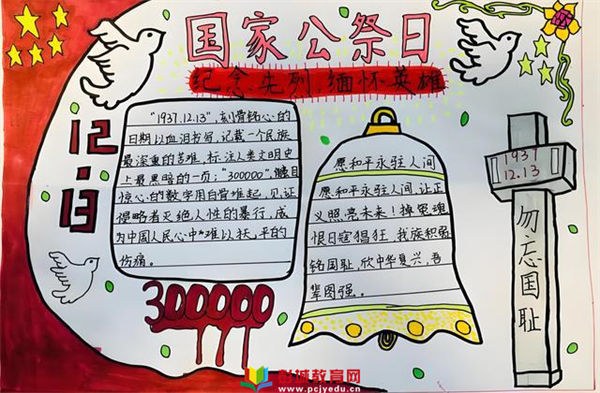 国家公祭日
纪念先列 缅怀英雄
12.13
"1937.12.13",刻骨铭心的
日期以血泪书写,记载一个民族
最深重的苦难,标注人类文明史
上最黑暗的一页;"300000",触目
惊心的数字用白骨堆起,见证
侵略者灭绝人性的暴行,成
为中国人民心中难以抚平的
伤痛。
300000
愿和平永驻人间
愿和平永驻人间,让正
义照亮未来!悼冤魂
恨日寇猖狂,我族积弱
铭国耻,欣中华复兴,吾
辈图强。
1937
12.13
勿忘国耻
彭城教育网
www.pcjyedu.cn